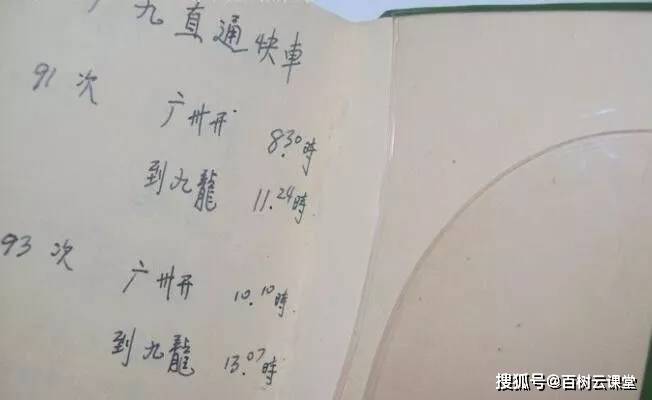 广九直通快車
91次
广州开 8.30時
到九龍 11.24時
93次
广州开 10.10時
到九龍 13.07時
搜狐号@百树云课堂